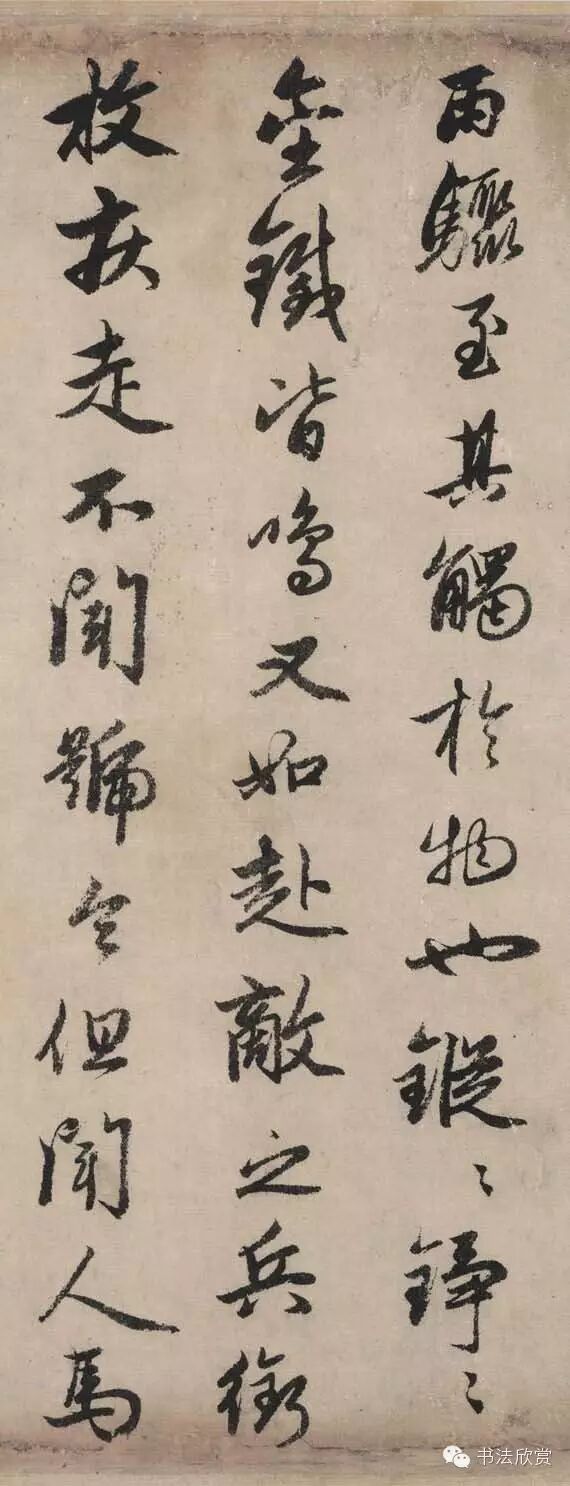 雨驟至其觸於物也鏦〻錚〻
金鐵皆鳴又如赴敵之兵銜
枚疾走不聞號令但聞人馬
书法欣赏